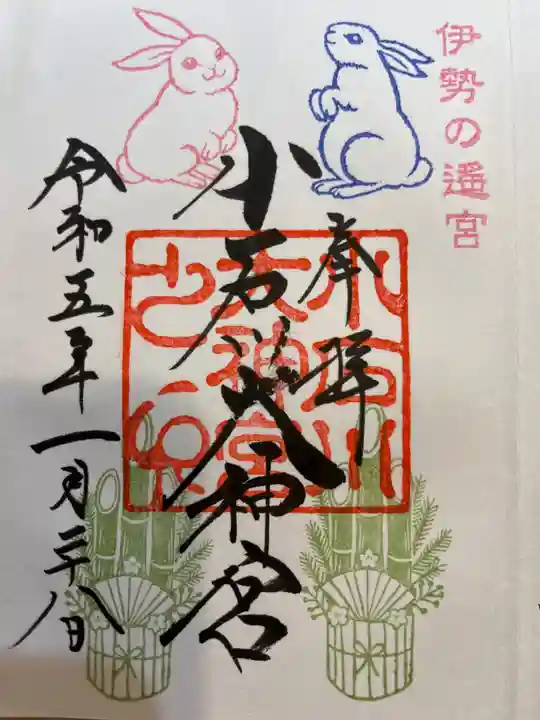 伊勢の遥宮
奉拝
小石川大神宮
小石川
大神宮
之印
令和五年一月二十八日